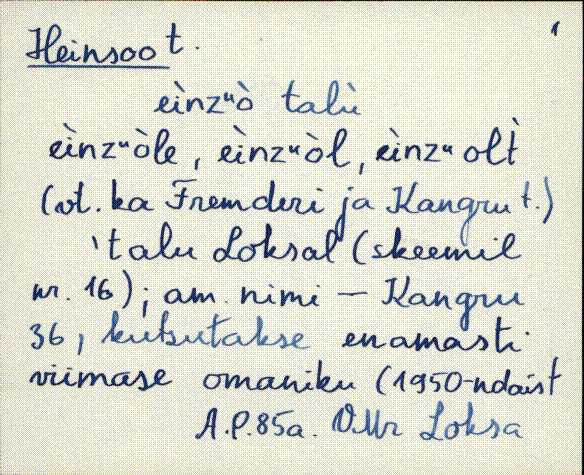 1
Heinsoo t.
èinzᵘò talù
èinzᵘòle, èinzᵘòl, èinzᵘolt̀
(vt. ka Fremderi ja Kangru t.)
'talu Loksal (skeemil
nr. 16); am. nimi — Kangru
36, kutsutakse enamasti
viimase omaniku (1950-ndaist
A.P. 85a. VMr Loksa